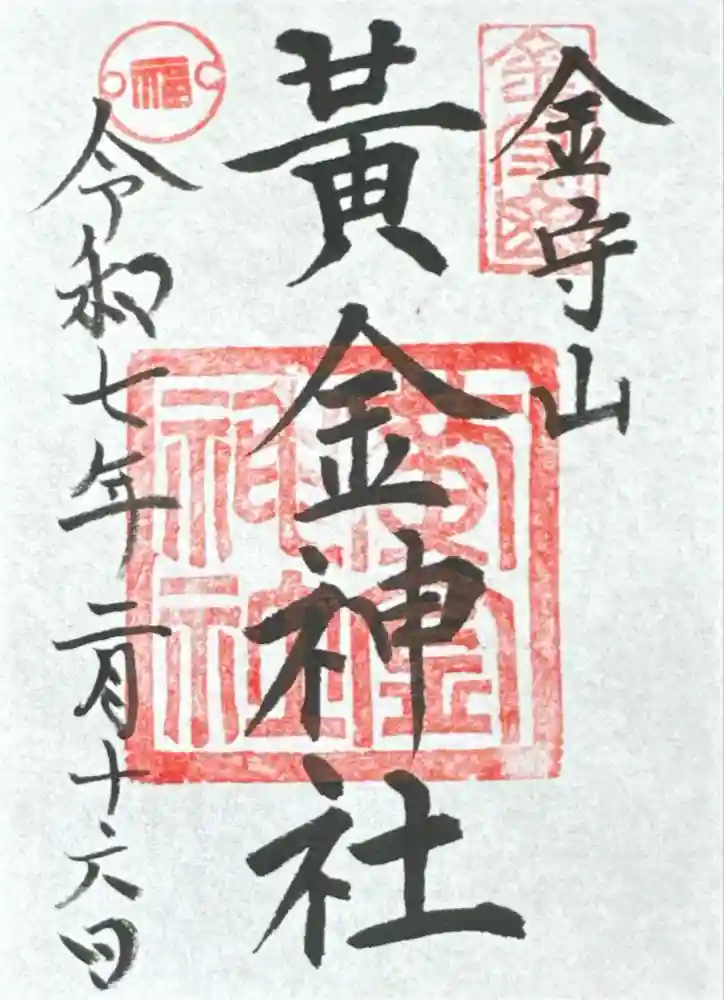 金守山
黄金神社
令和七年二月十六日
黄金神社
福